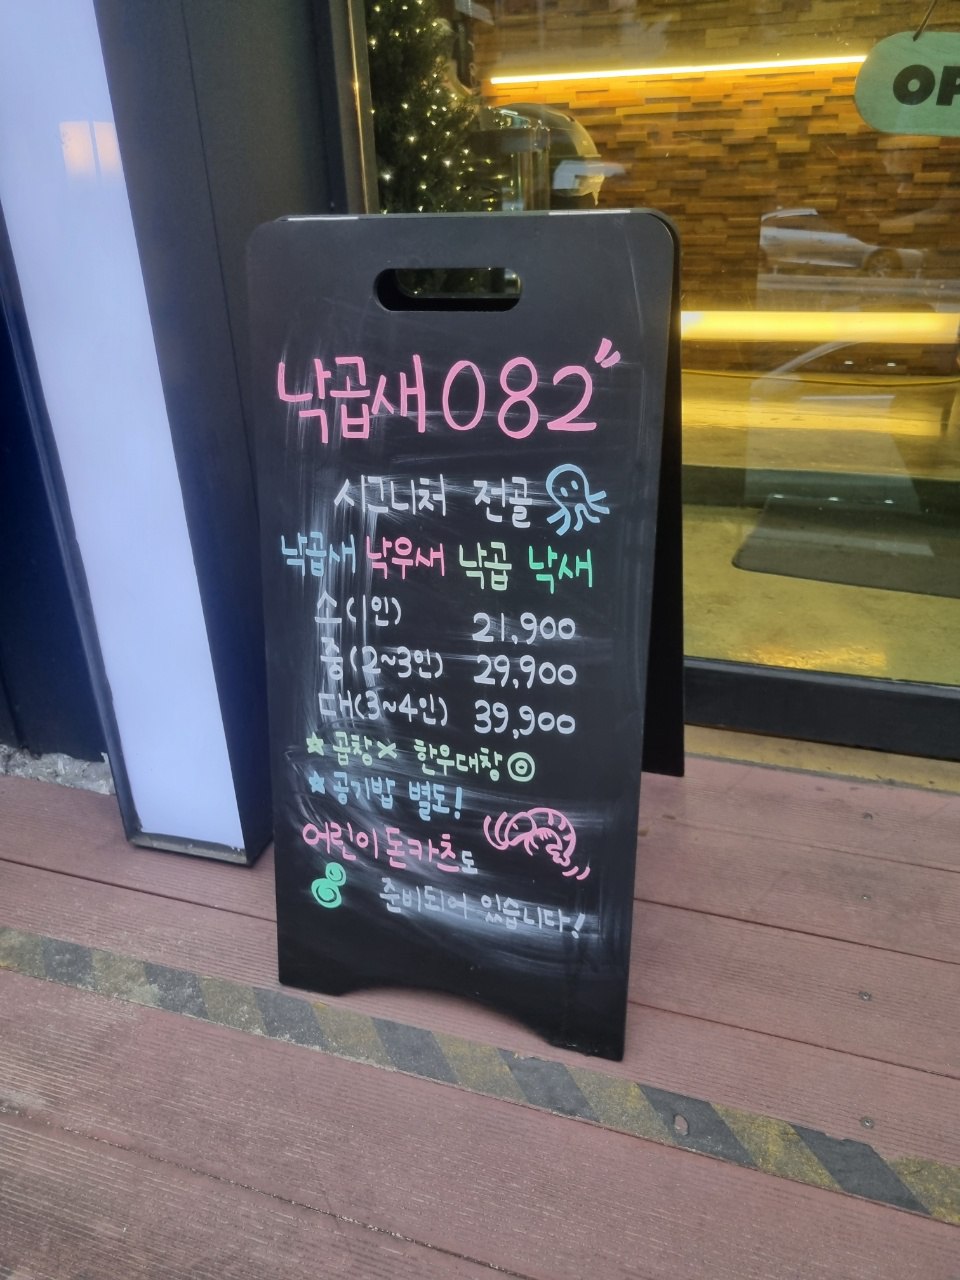 OP
낙곱새 082"
시그니처 전골
낙곱새 낙우새 낙곱 낙새
소(1인) 21,900
중(2~3인) 29,900
대(3~4인) 39,900
★ 곱창× 한우대창◎
★ 공기밥 별도!
어린이 돈카츠도
준비되어 있습니다!